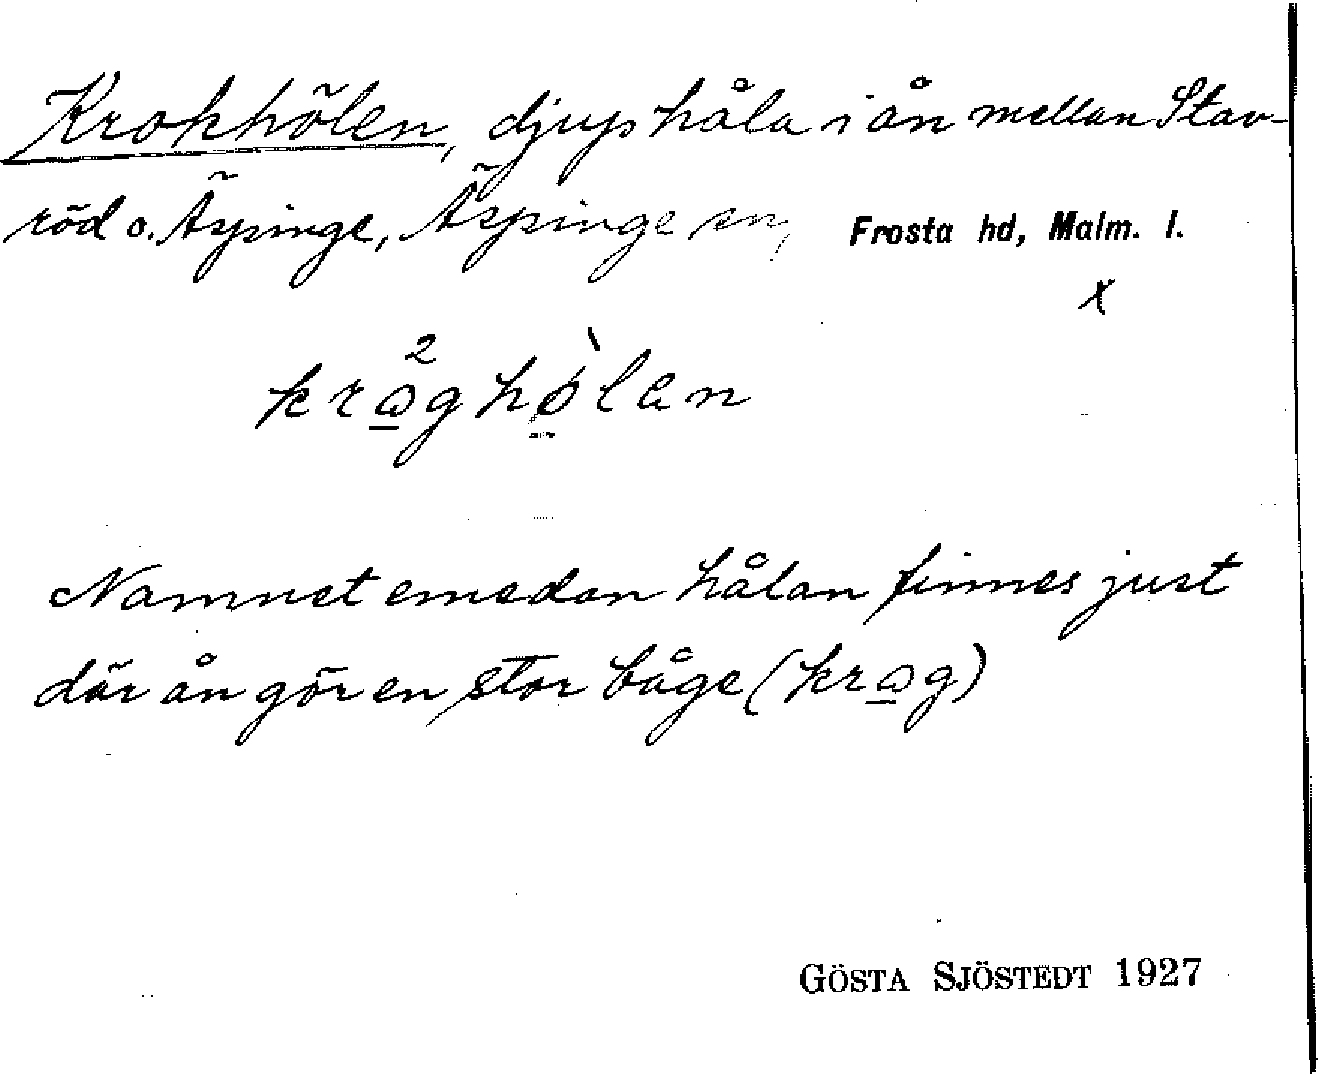 Krokhölen, djup håla i ån mellan Stav-
röd o. Äspinge, Äspinge sn, Frosta hd, Malm. l.
x
Namnet emedan hålan finnes just
där ån gör en stor båge (krɷg)
GÖSTA SJÖSTEDT 1927